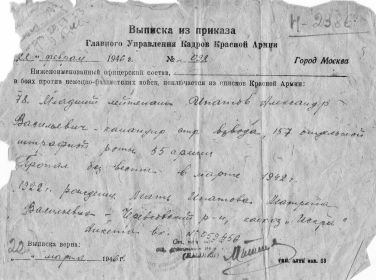 Н-2386
Выписка из приказа
Главного Управления Кадров Красной Армии
22 " февраля 1946 г. № 038 Город Москва
Нижепоименованный офицерский состав,
в боях против немецко-фашистских войск, исключается из списков Красной Армии:
78. Младший лейтенант Ипатов Александр
Васильевич – командир стр взвода, 157 отдельной
штрафной роты 55 армии
Пропал без вести в марте 1942 г.
1922 г. рождения Мать Ипатова
р-н, совхоз "Искра"
вх. №
Выписка верна:
22 " марта 1946 г.